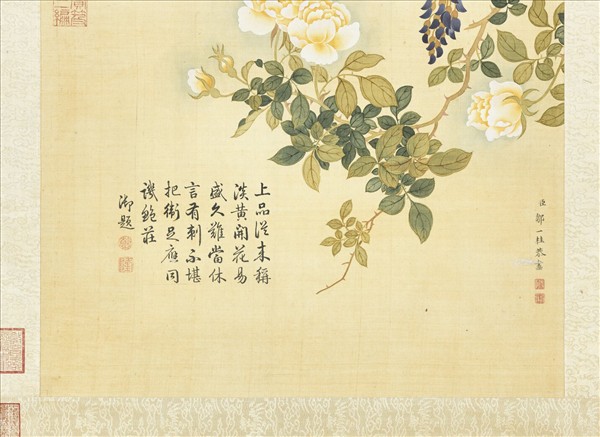 臣鄒一桂恭畫
上品從来稱
淡黄開花易
盛久難當休
言有刺不堪
把衛足應同
譏鮑莊
御題